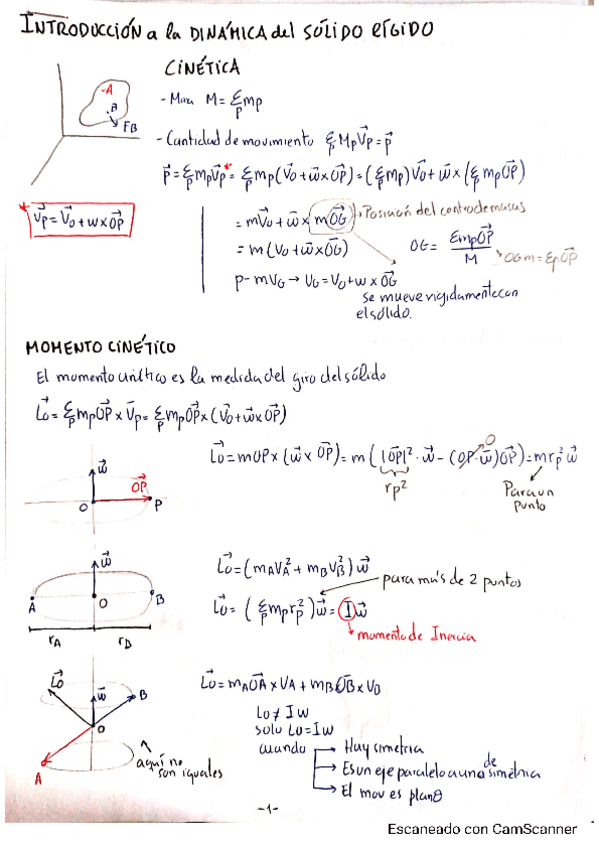 INTRODUCCIÓN a la DINÁMICA del SÓLIDO RÍGIDO
CINÉTICA
A
B
FB
- Masa M = Σp mp
- Cantidad de movimiento Σp Mp V⃗p = p⃗
p⃗ = Σp mp V⃗p* = Σp mp (V⃗o + ω⃗ x OP⃗) = (Σp mp) V⃗o + ω⃗ x (Σp mp OP⃗)
* V⃗p = V⃗o + w x OP⃗
= m V⃗o + ω⃗ x m OG⃗ → Posición del centro de masas
= m (Vo + ω⃗ x OG⃗)
OG = Σ mp OP⃗ / M → OG m = Σp OP⃗
p - m VG → UG = Vo + w x OG⃗
se mueve rigidamente con
el sólido.
MOMENTO CINÉTICO
El momento cinético es la medida del giro del sólido
L⃗o = Σp mp OP⃗ x V⃗p = Σp mp OP⃗ x (V⃗o + ω⃗ x OP⃗)
L⃗o = m OP x (ω⃗ x OP⃗) = m (|OP⃗|² · ω⃗ - (OP · ω⃗) OP⃗) = m rp² ω⃗
0
rp²
Para un
punto
ω⃗
OP⃗
O
P
L⃗o = (mA VA² + mB VB²) ω⃗
para más de 2 puntos
L⃗o = (Σp mp rp²) ω⃗ = I ω⃗
momento de Inercia
ω⃗
A
O
B
rA
rB
L⃗o = mA OA⃗ x VA + mB OB⃗ x VB
Lo ≠ I w
solo Lo = I w
cuando
→ Hay simetria
→ Es un eje paralelo a una de simétria
→ El mov es plano
L⃗o
ω⃗
B
O
A
aquí no
son iguales
-1-
Escaneado con CamScanner